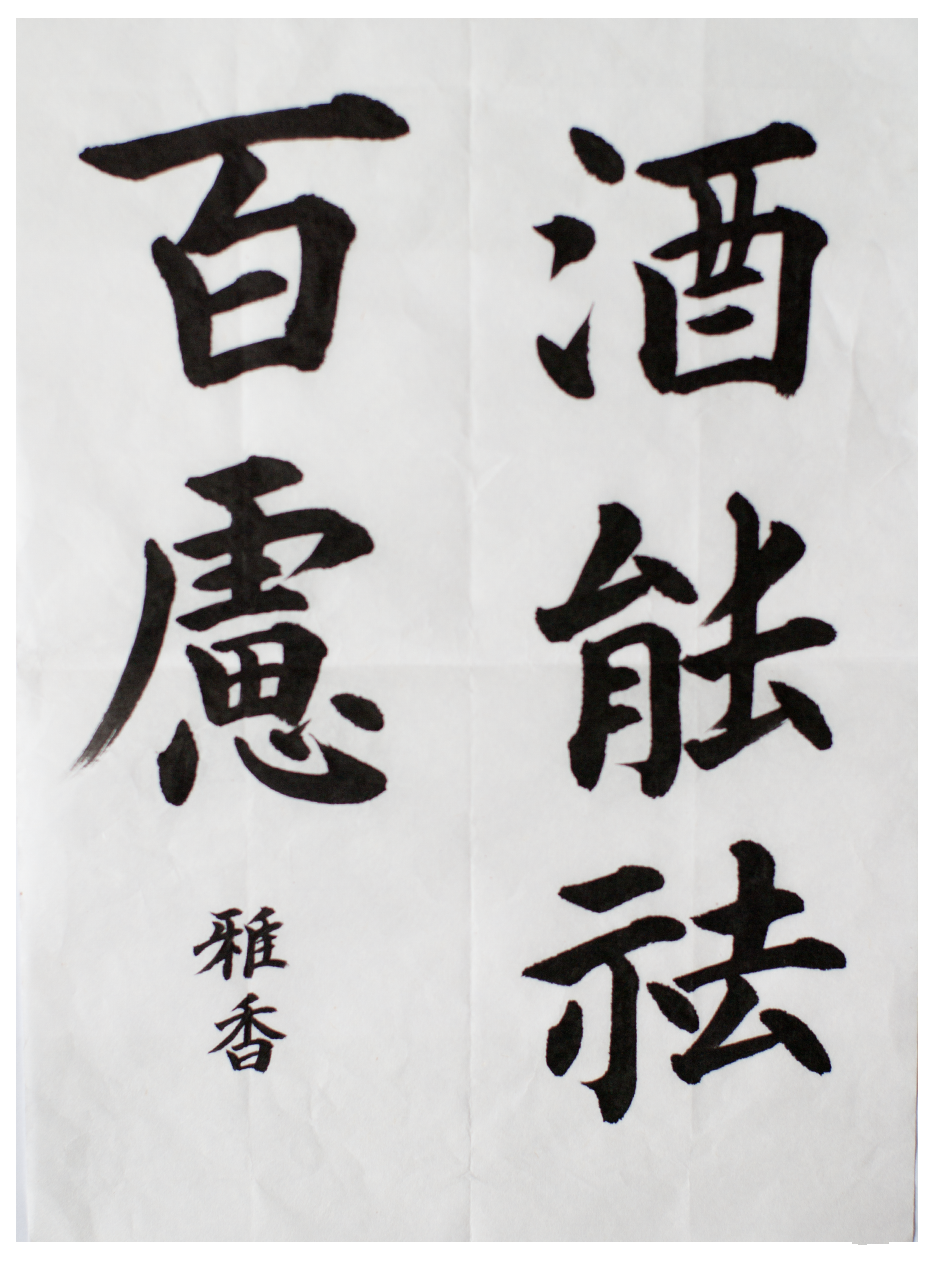 酒能祛
百慮
雅香